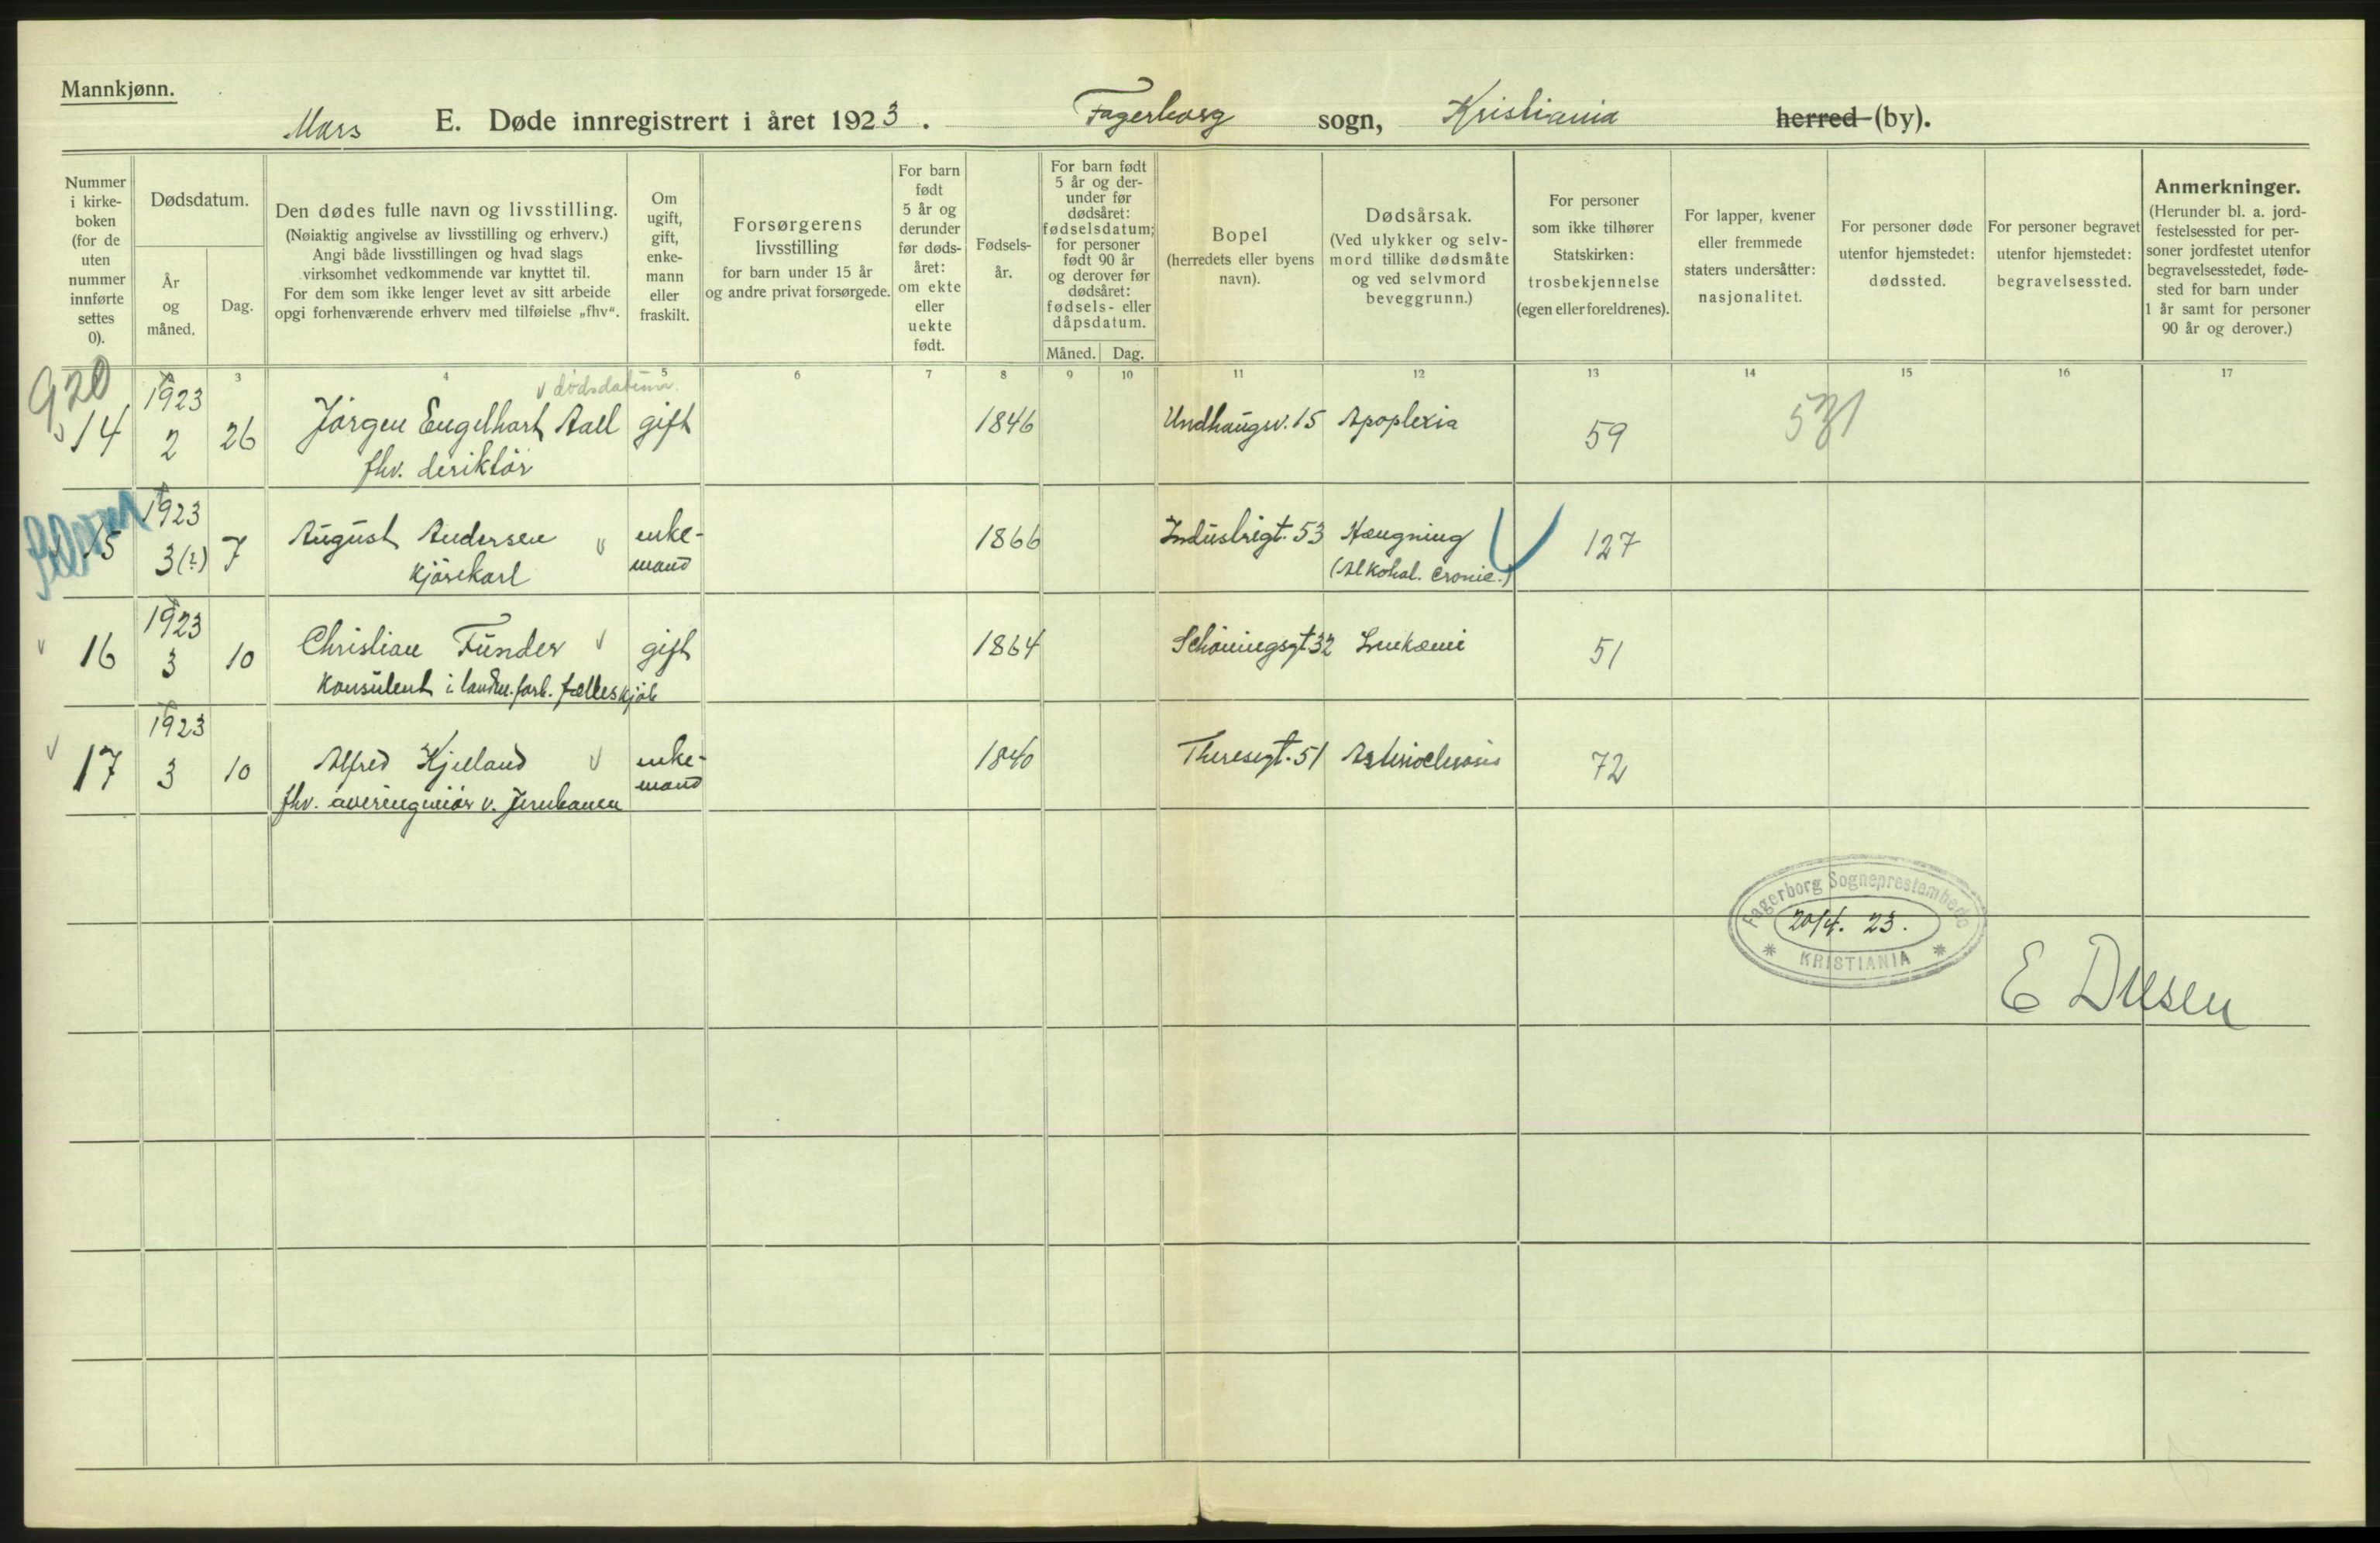 Mannkjønn.
Mars E. Døde innregistrert i året 1923. Fagerborg sogn, Kristiania herred (by).
Nummer i kirke-boken (for de uten nummer innførte settes 0).
Dødsdatum.
År og måned.
Dag.
Den dødes fulle navn og livsstilling.
(Nøiaktig angivelse av livsstilling og erhverv.)
Angi både livsstillingen og hvad slags
virksomhet vedkommende var knyttet til.
For dem som ikke lenger levet av sitt arbeide
opgi forhenværende erhverv med tilføielse „fhv“.
Om ugift, gift, enke-mann eller fraskilt.
Forsørgerens
livsstilling
for barn under 15 år
og andre privat forsørgede.
For barn født 5 år og derunder før døds-året: om ekte eller uekte født.
Fødsels-år.
For barn født 5 år og der-under før dødsåret: fødselsdatum; for personer født 90 år og derover før dødsåret: fødsels- eller dåpsdatum.
Måned. Dag.
Bopel
(herredets eller byens
navn).
Dødsårsak.
(Ved ulykker og selv-
mord tillike dødsmåte
og ved selvmord
beveggrunn.)
For personer
som ikke tilhører
Statskirken:
trosbekjennelse
(egen eller foreldrenes).
For lapper, kvener
eller fremmede
staters undersåtter:
nasjonalitet.
For personer døde
utenfor hjemstedet:
dødssted.
For personer begravet
utenfor hjemstedet:
begravelsessted.
Anmerkninger.
(Herunder bl. a. jord-
festelsessted for per-
soner jordfestet utenfor
begravelsesstedet, føde-
sted for barn under
1 år samt for personer
90 år og derover.)
3 4 5 6 7 8 9 10 11 12 13 14 15 16 17
920 v dødsdatum.
14 1923 2 26 Jörgen Engelhart Aall gift 1846 Undhaugsv. 15 Apoplexia 59 531
fhv. deriktör
15 1923 3(?) 7 August Andersen v enke- 1866 Industrigt. 53 Hængning 127
kjörekarl mand (Alkohol. cronic.)
v 16 1923 3 10 Christian Funder v gift 1864 Schöningsgt 32 Leukæmi 51
Konsulent i landm.forb. fælleskjöb
v 17 1923 3 10 Alfred Kjelland v enke- 1840 Theresegt. 51 72
fhv. overingeniör v. Jernbanen mand
Fagerborg Sogneprestembede
20/4. 23.
* KRISTIANIA *